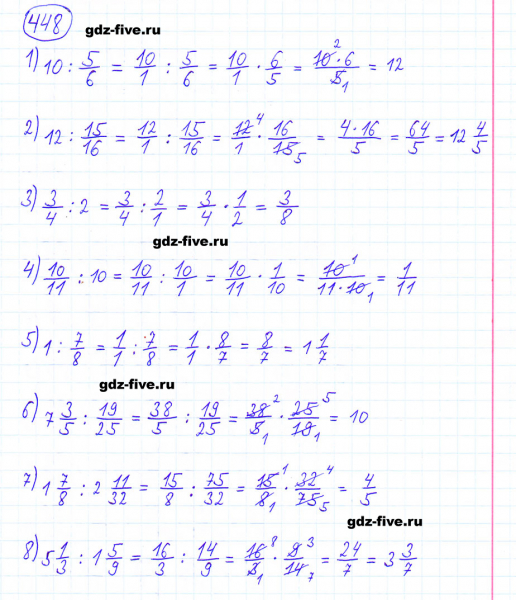 448
gdz-five.ru
1) 10 : 5/6 = 10/1 : 5/6 = 10/1 · 6/5 = 10² · 6 / 5₁ = 12
2) 12 : 15/16 = 12/1 : 15/16 = 12⁴/1 · 16/15₅ = 4·16/5 = 64/5 = 12 4/5
3) 3/4 : 2 = 3/4 : 2/1 = 3/4 · 1/2 = 3/8
gdz-five.ru
4) 10/11 : 10 = 10/11 : 10/1 = 10/11 · 1/10 = 10¹/11·10₁ = 1/11
5) 1 : 7/8 = 1/1 : 7/8 = 1/1 · 8/7 = 8/7 = 1 1/7
gdz-five.ru
6) 7 3/5 : 19/25 = 38/5 : 19/25 = 38²/5₁ · 25⁵/19₁ = 10
7) 1 7/8 : 2 11/32 = 15/8 : 75/32 = 15¹/8₁ · 32⁴/75₅ = 4/5
gdz-five.ru
8) 5 1/3 : 1 5/9 = 16/3 : 14/9 = 16⁸/3₁ · 9³/14₇ = 24/7 = 3 3/7